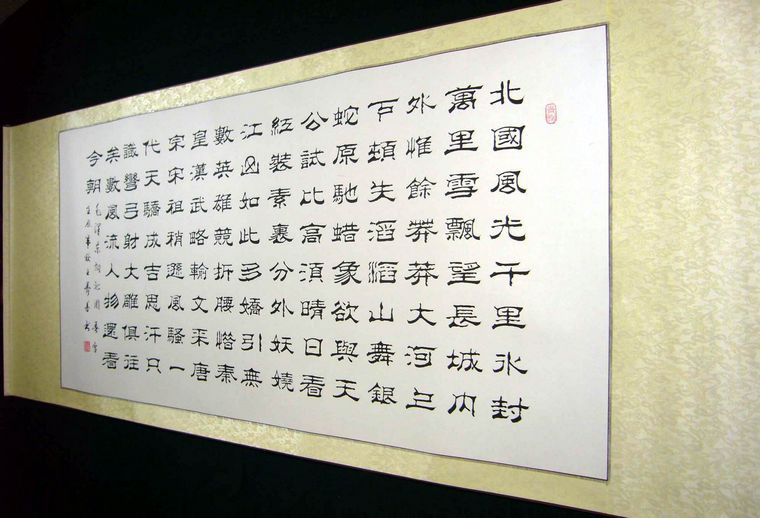 北國風光千里氷封
萬里雪飄望長城内
外惟餘莽莽大河上
下頓失滔滔山舞銀
蛇原馳蜡象欲與天
公試比高須晴日看
紅裝素裹分外妖嬈
江山如此多嬌引無
數英雄競折腰惜秦
皇漢武略輸文采唐
宗宋祖稍遜風騷一
代天驕成吉思汗只
識彎弓射大雕俱往
矣數風流人物還看
今朝
毛澤東詞沁園春雪